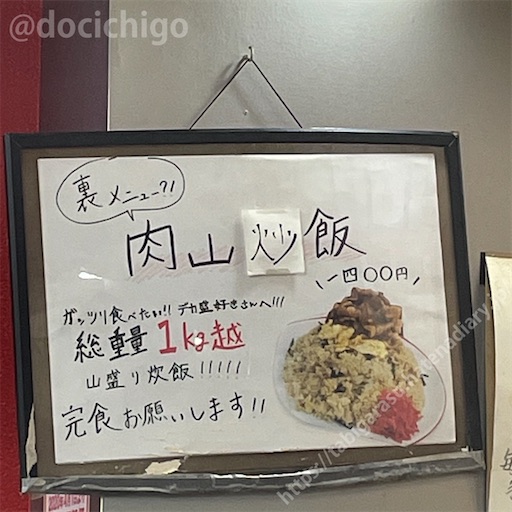 @docichigo
裏メニュー?!
肉山炒飯
一四〇〇円
ガッツリ食べたい!! デカ盛好きさんへ!!!
総重量 1kg越
山盛り炊飯!!!!!!
完食お願いします!!